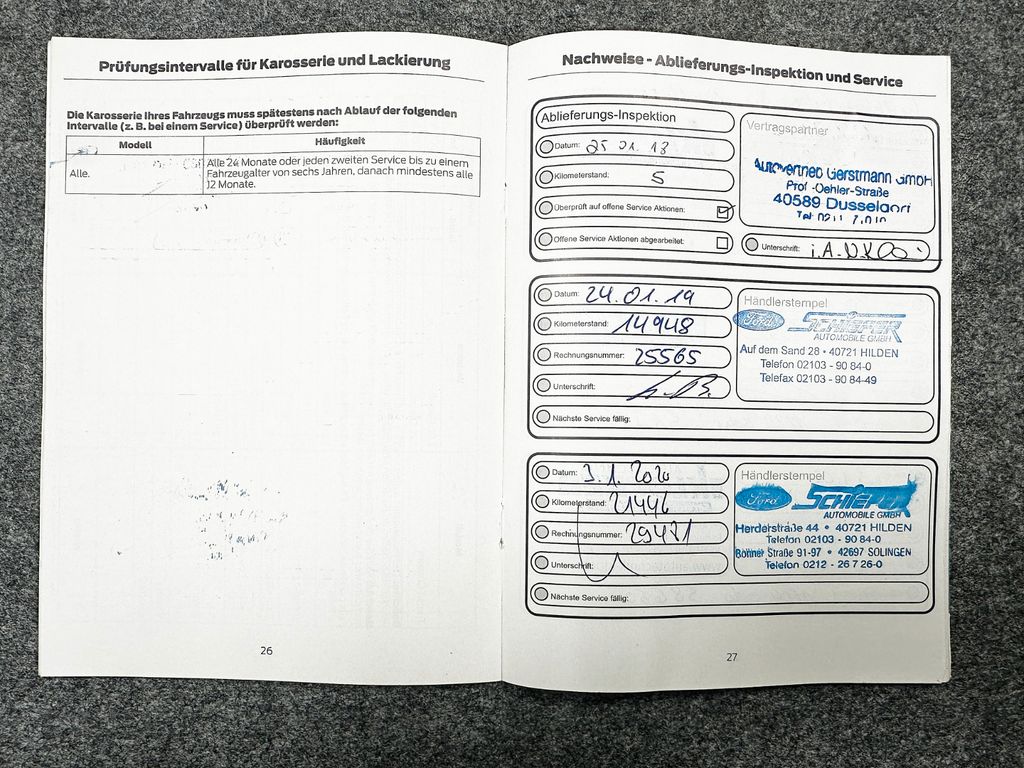 Prüfungsintervalle für Karosserie und Lackierung
Die Karosserie Ihres Fahrzeugs muss spätestens nach Ablauf der folgenden
Intervalle (z. B. bei einem Service) überprüft werden:
Modell Häufigkeit
Alle. Alle 24 Monate oder jeden zweiten Service bis zu einem
Fahrzeugalter von sechs Jahren, danach mindestens alle
12 Monate.
26
Nachweise - Ablieferungs-Inspektion und Service
Ablieferungs-Inspektion
Datum: 25 01. 18
Kilometerstand: 5
Überprüft auf offene Service Aktionen:
Offene Service Aktionen abgearbeitet:
Vertragspartner
Autovertrieb Gerstmann GmbH
Prof.-Oehler-Straße
40589 Dusseldorf
Tel. 0211
Unterschrift:
Datum: 24.01.19
Kilometerstand: 14948
Rechnungsnummer: 25565
Unterschrift:
Nächste Service fällig:
Händlerstempel
Ford SCHIEFER
AUTOMOBILE GMBH
Auf dem Sand 28 • 40721 HILDEN
Telefon 02103 - 90 84-0
Telefax 02103 - 90 84-49
Datum: 3.1.2020
Kilometerstand: 21446
Rechnungsnummer: 29471
Unterschrift:
Nächste Service fällig:
Händlerstempel
Ford SCHIEFER
AUTOMOBILE GMBH
Herderstraße 44 • 40721 HILDEN
Telefon 02103 - 90 84-0
Bonner Straße 91-97 • 42697 SOLINGEN
Telefon 0212 - 26 7 26-0
27